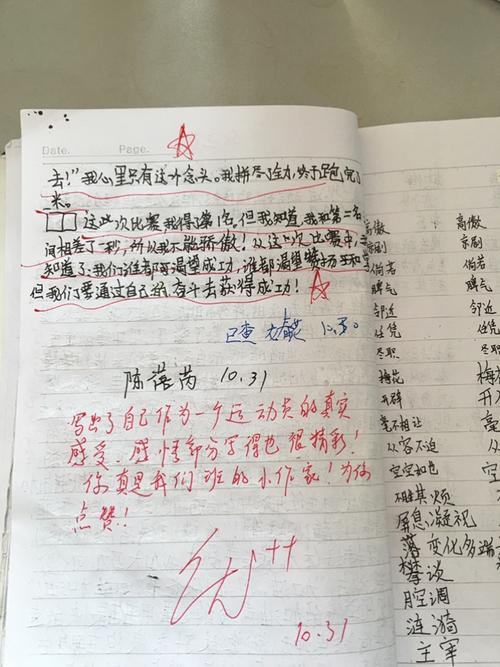 Date.
Page.
去!”我心里只有这个念头。我拼尽了全力,终于跑完了
米。
这次比赛我得了第1名,但我知道,我和第二名
间相差了一秒,所以我不能骄傲!从这次比赛中,
知道了:我们谁都可渴望成功,谁都渴望
但我们要通过自己的奋斗去获得成功!
已查
10.30
陈蓓芮 10.31
写出了自己作为一个运动员的真实
感受。感悟部分写得也很精彩!
你真是我们班的小作家!为你
点赞!
优++
10.31
高傲 高傲
京剧 京剧
倘若 倘若
脾气 脾气
邻近 邻近
任凭 任凭
尽职 尽职
梅花 梅
开辟 开
毫不相让 毫
从容不迫 从
空空如也 空
不胜其烦
屏息凝视
变化多端
攀谈
腔调
涟漪
主宰